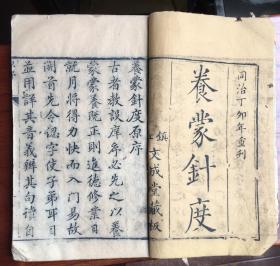 同治丁卯年重刊
養蒙針度
鎮江文成堂藏板
養蒙針度原序
古者教設庠序必先之以養
蒙蒙養既正則進德修業日
就月將得力快而入門易故
開首先令認字使子弟耳目
並用詳其音義辨其句讀自